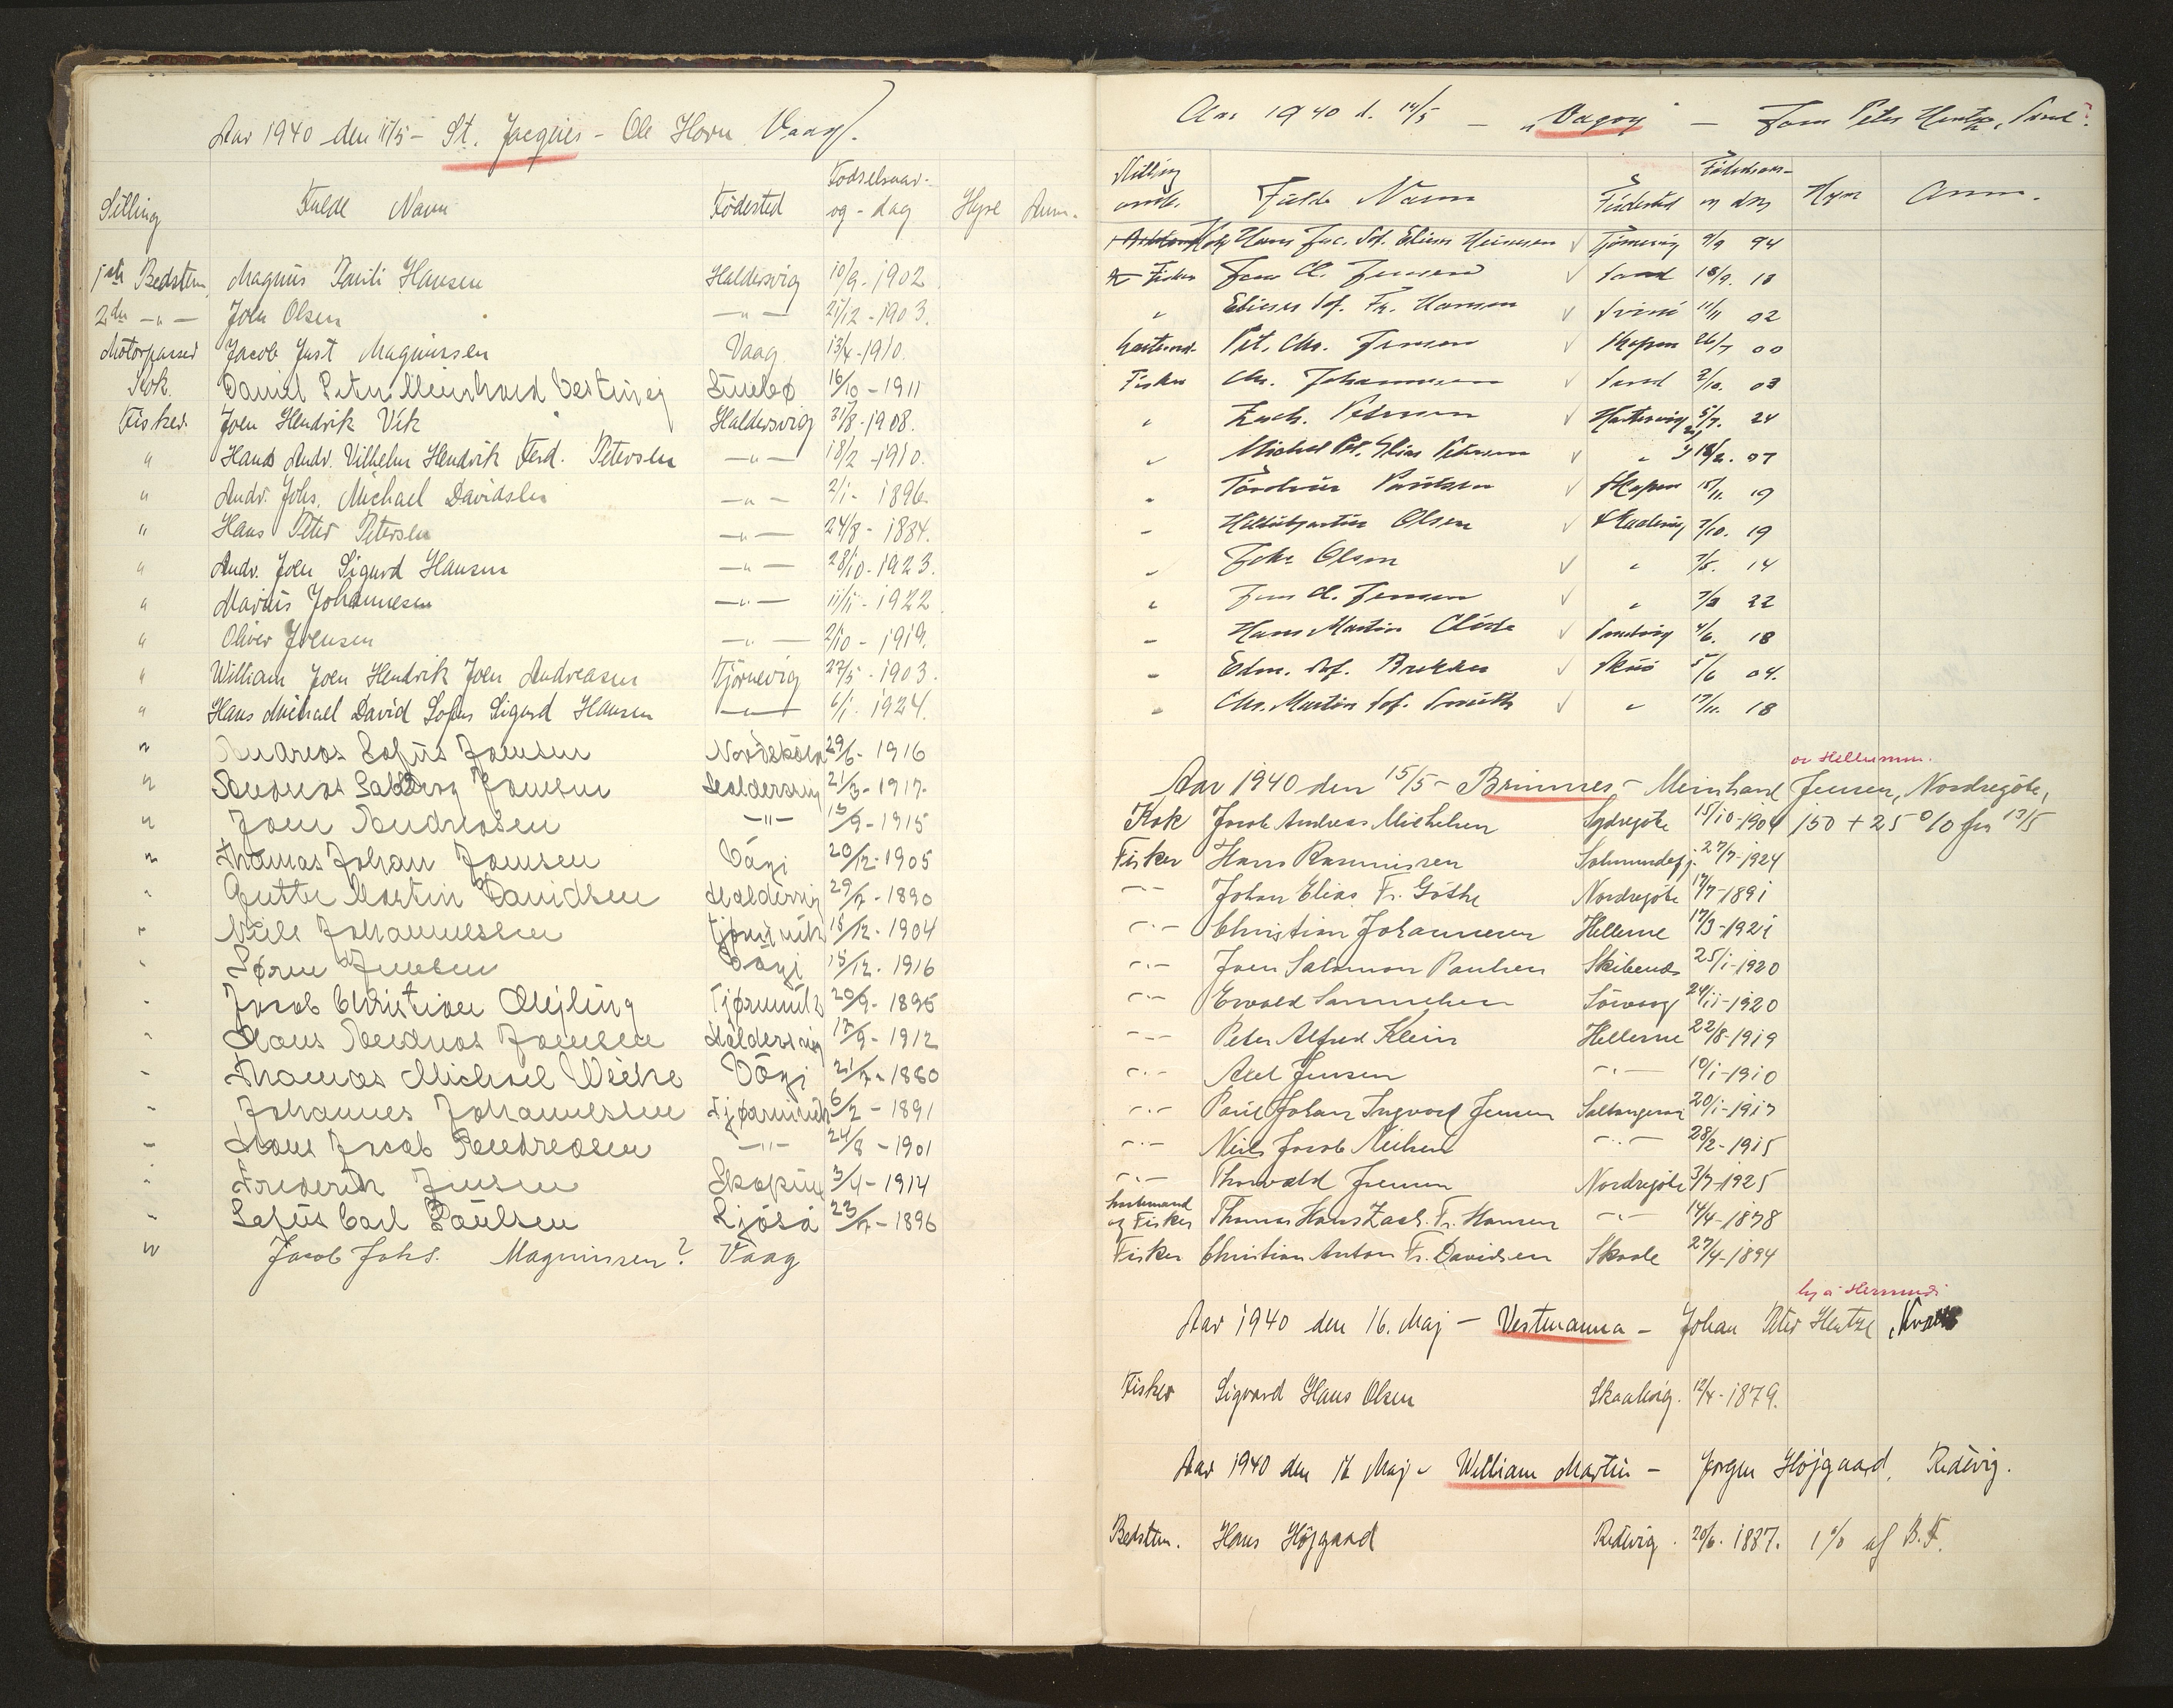 Aar 1940 den 11/5 - St. Jacques - Ole Horn Vaag.
Stilling Fulde Navn Födested Födselsaar- og - dag Hyre Anm.
1ste Bedstm. Magnus Pauli Hansen Haldersvig 10/9 - 1902
2den -"- Joen Olsen -"- 21/12 - 1903.
Motorpasser Jacob Just Magnussen Vaag 13/4 - 1910.
Kok. Daniel Peter Meinhard Vesturvej 16/10 - 1911
Fisker Joen Hendrik Vik Haldersvig 31/8 - 1908.
" Hans Andr. Vilhelm Hendrik Ferd. Petersen -"- 18/2 - 1910.
" Andr. Johs. Michael Davidsen -"- 2/1 - 1896.
" Hans Peter Petersen -"- 24/8 - 1884.
" Andr. Joen Sigurd Hansen -"- 28/10 - 1923.
" Marius Johannesen -"- 11/11 - 1922
" Oliver Joensen -"- 2/10 - 1919.
" William Joen Hendrik Joen Andreasen Tjörnevig 27/5 - 1903.
" Hans Michael David Sofus Sigurd Hansen -"- 6/1 - 1924.
" Andreas Sofus Joensen 29/6 - 1916
" Andreas Joensen Haldersvig 21/3 - 1917.
" Joen Andreasen -"- 13/9 - 1915
" Thomas Johan Joensen Vági 20/12 - 1905
" Martin Davidsen Haldersvig 29/7 - 1890
" Niels Johannessen 15/12 - 1904
" Søren Jensen Vági 15/12 - 1916
" Jacob Christian 20/9 - 1895
" Hans Andreas Joensen Haldersvig 17/9 - 1912
" Thomas Michael Weihe Vági 21/7 - 1880
" Johannes Johannessen 6/2 - 1891
" Hans Jacob Andreasen -"- 24/8 - 1901
" Frederik Jensen 3/4 - 1914
" Sofus Carl Paulsen Ljósá 23/7 - 1896
" Jacob Johs. Magnussen? Vaag
Aar 1940 d. 14/5 - "Vagoy" - Peter Hentze, Sand.
Stilling omb. Fulde Navn Födested Födselsaar- og dag Hyre Anm.
Kok Hans Jac. Sof. Elieser Heinesen √ Tjörnevig 9/9 94
Fisker Joen Cl. Jensen √ Sand 18/9. 18
" Elieser Sof. Fr. Hansen √ Svinö 11/11 02
Lastemd. Pet. Chr. Jensen √ Skopen 26/7 00
Fisker Chr. Johannesen √ Sand 2/10. 03
" Zach. Petersen √ 5/7. 24
" Michel Pet. Elias Petersen √ " 18/2. 07
" Poulsen √ Skopen 15/11. 19
" Olsen √ 7/10. 19
" Johs Olsen √ " 7/5. 14
" Jens Cl. Jensen √ " 7/3 22
" Hans Martin √ Sandvig 4/6. 18
" Edm. Sof. Brekkes √ Skúö 5/6 04.
" Chr. Martin Sof. Smith √ " 17/11. 18
av Hellunum.
Aar 1940 den 15/5 - Brimnes - Meinhard Jensen, Nordregöte,
Kok Jacob Andreas Michelsen Sydregöte 15/10 - 1904 150 + 25 % fra 13/5
Fisker Hans Rasmussen 27/7 - 1924
-"- Johan Elias Fr. Göthe Nordregöte 17/7 - 1891
-"- Christian Johannesen Hellerne 17/3 - 1921
-"- Joen Salomon Paulsen Skibenæs 25/1 - 1920
-"- Ewald Samuelsen Sörvaag 24/11 - 1920
-"- Peter Alfred Klein Hellerne 22/8 - 1919
-"- Axel Jensen -"- 10/1 - 1910
-"- Paul Johan Ingvard Jensen Saltangerne 20/1 - 1917
-"- Niels Jacob Nielsen -"- 28/2 - 1915
-"- Thorvald Jensen Nordregöte 3/7 - 1925
Lastemand og Fisker Thomas Hans Zach. Fr. Hansen -"- 14/4 - 1878
Fisker Christian Anton Fr. Davidsen Skaale 27/4 - 1894
Aar 1940 den 16. Maj - Vestmanna - Johan Peter Hentze,
Fisker Sigvard Hans Olsen Skaalevig. 12/4 - 1879.
Aar 1940 den 16 Maj - William Martin - Jørgen Höjgaard, Ridevig.
Bedstm. Hans Højgaard Ridevig. 20/6. 1887. 1 % af B.F.